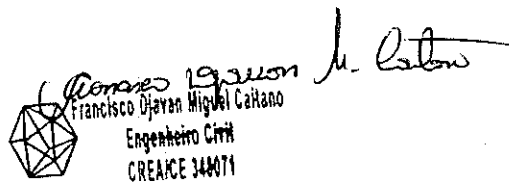 Francisco Djavan M. Caitano
Francisco Djavan Miguel Caitano
Engenheiro Civil
CREA/CE 348071